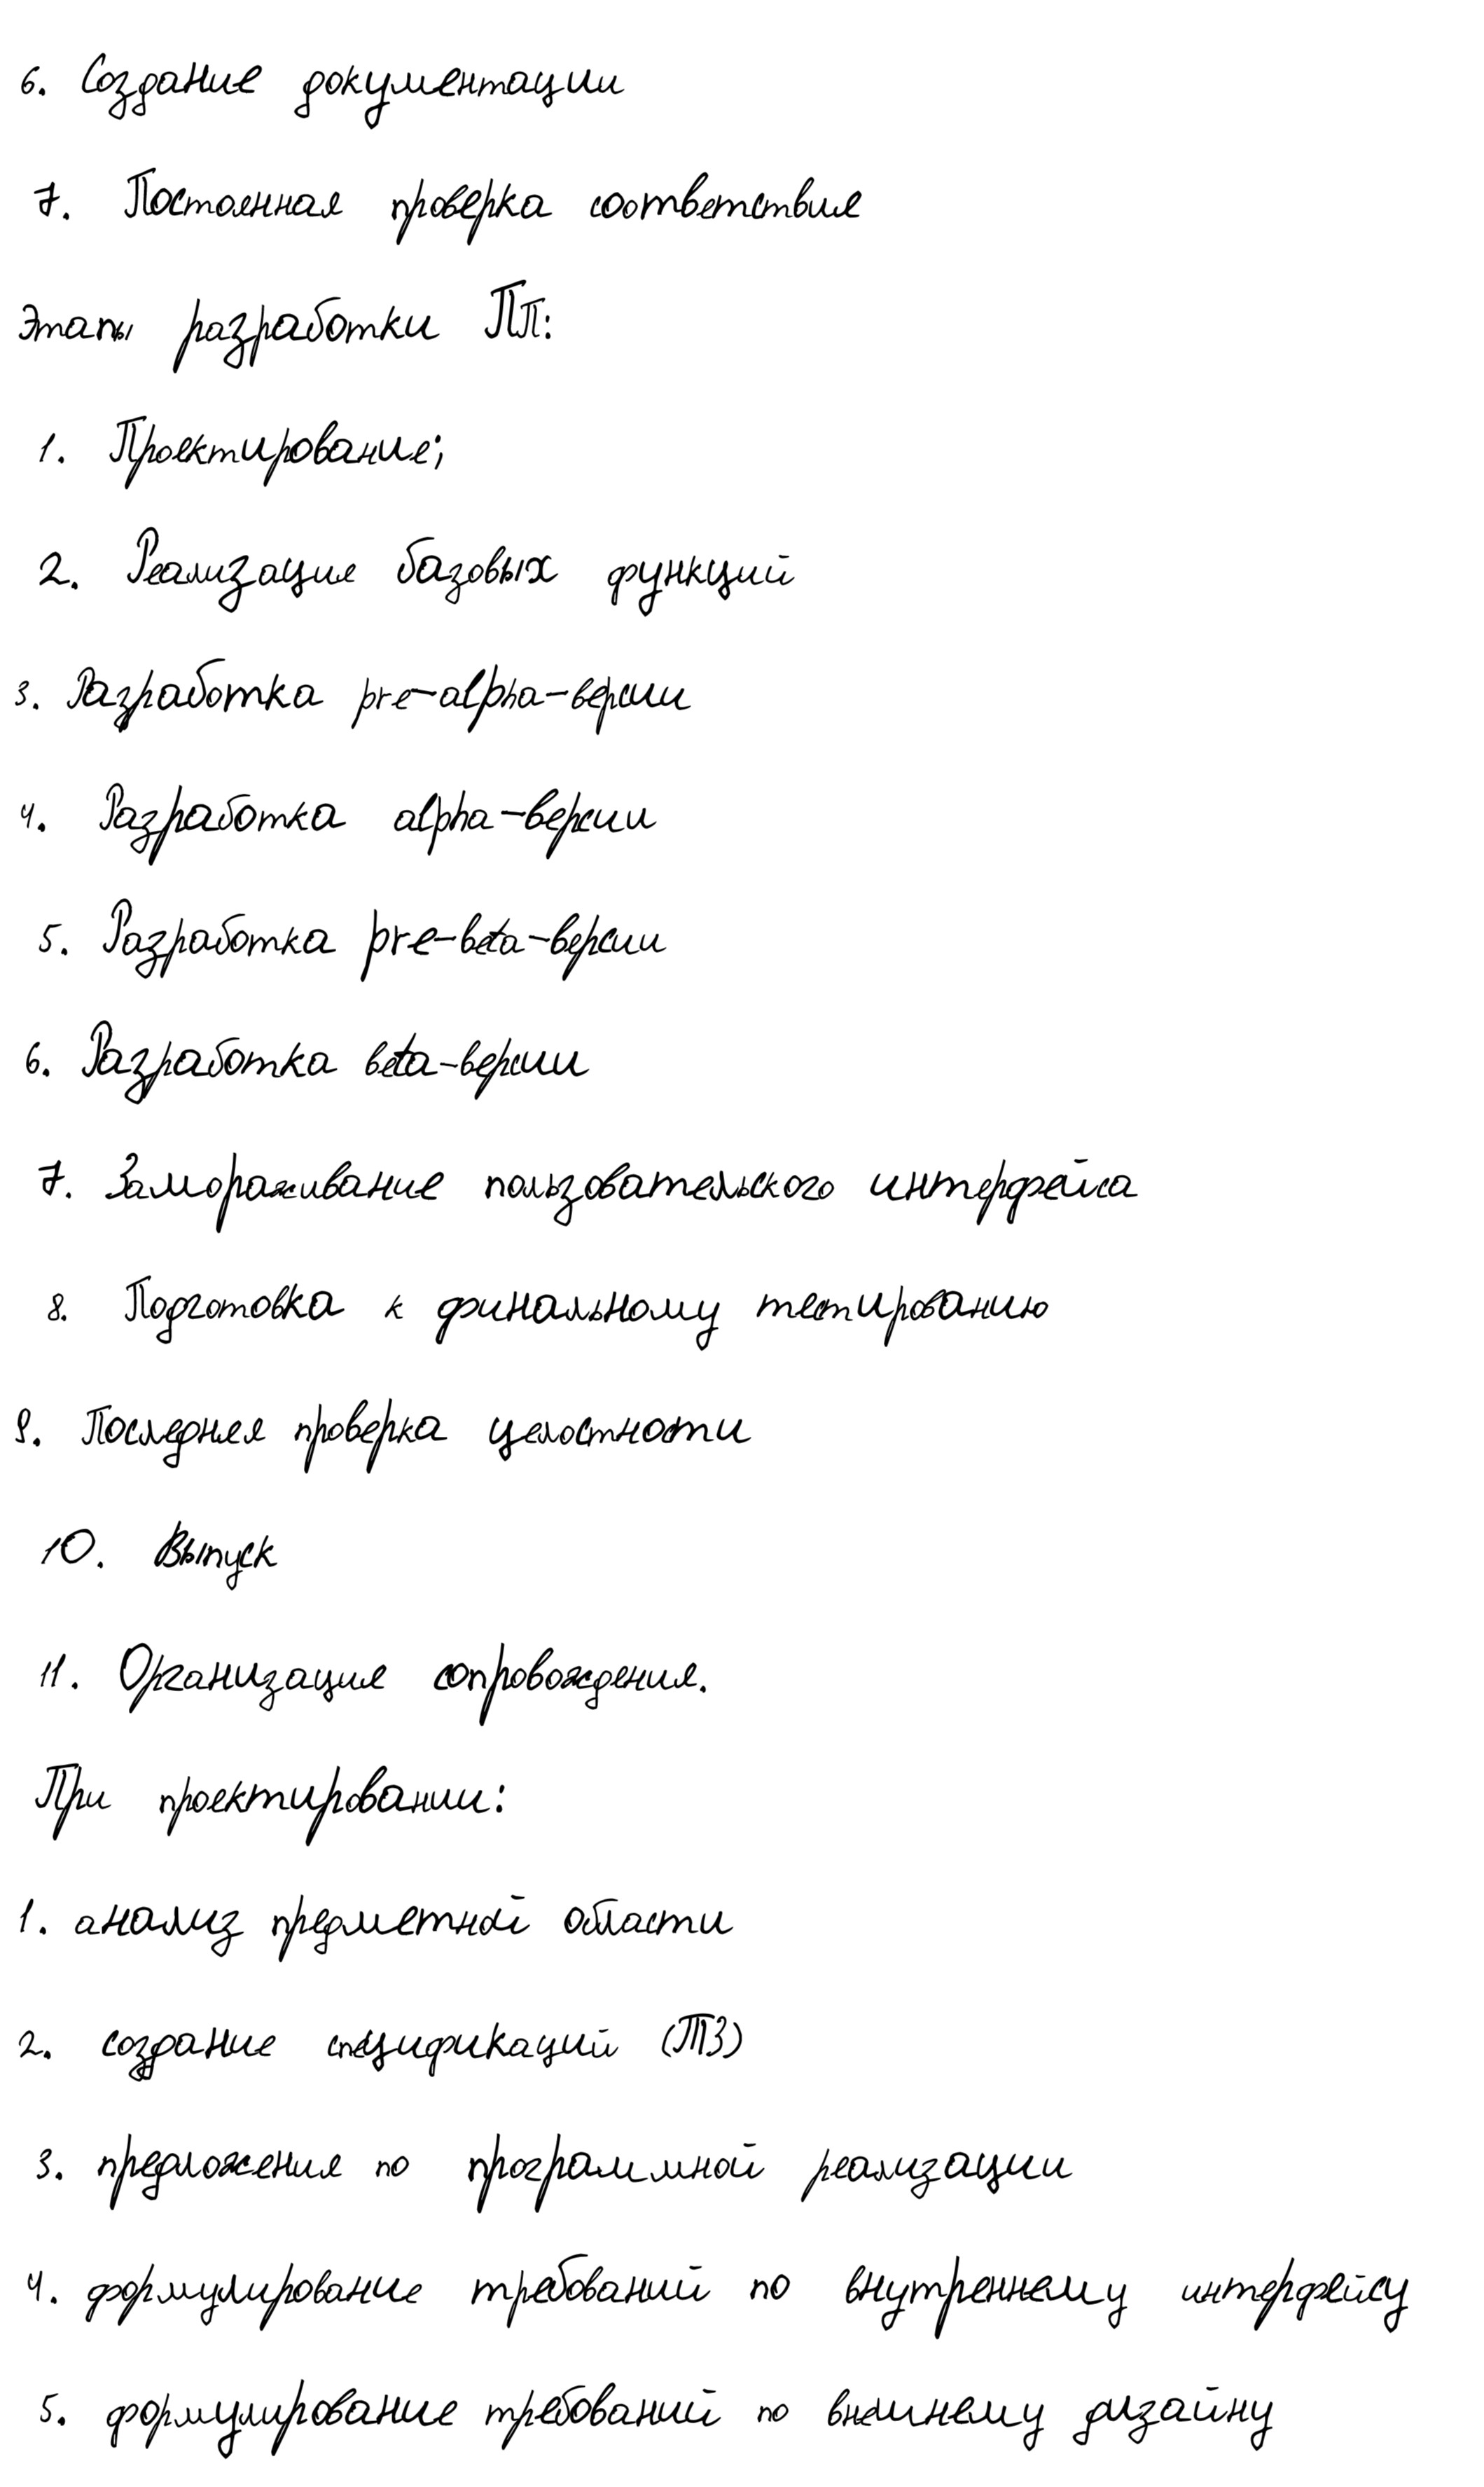 6. Создание документации
7. Постоянная проверка соответствия
Этапы разработки ПП:
1. Проектирование;
2. Реализация базовых функций
3. Разработка pre-alpha-версии
4. Разработка alpha-версии
5. Разработка pre-beta-версии
6. Разработка beta-версии
7. Замораживание пользовательского интерфейса
8. Подготовка к финальному тестированию
9. Последняя проверка целостности
10. Выпуск
11. Организация сопровождения.
При проектировании:
1. анализ предметной области
2. создание спецификаций (ТЗ)
3. предложения по программной реализации
4. формулирование требований по внутреннему интерфейсу
5. формулирование требований по внешнему дизайну